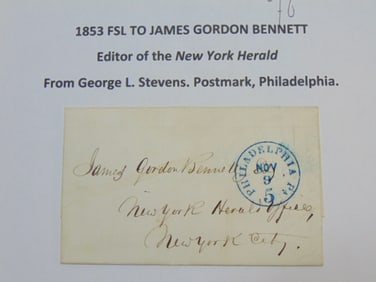 76
1853 FSL TO JAMES GORDON BENNETT
Editor of the New York Herald
From George L. Stevens. Postmark, Philadelphia.
James Gordon Bennett
PHILADELPHIA Pa.
NOV
9
5
New York Herald Office,
New York City.